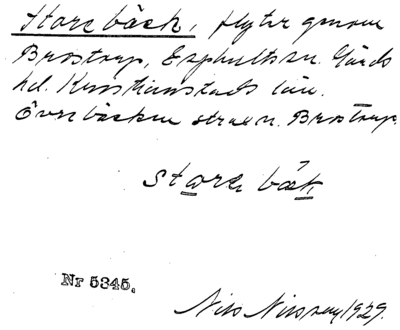 Storebäck, flyter genom
Brostorp, Esphults sn. Gärds
hd. Kristianstads län.
Över bäcken Brostorp.
store bæk
Nr 5345.
Nils Nilsson 1929.